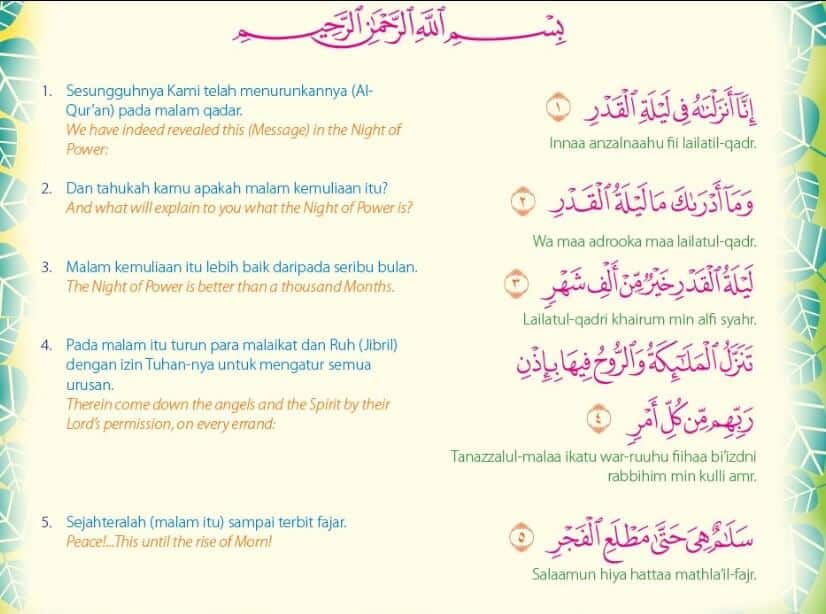 بِسْمِ اللَّهِ الرَّحْمَٰنِ الرَّحِيمِ
1. Sesungguhnya Kami telah menurunkannya (Al-
Qur'an) pada malam qadar.
We have indeed revealed this (Message) in the Night of
Power:
إِنَّا أَنزَلْنَاهُ فِي لَيْلَةِ الْقَدْرِ ١
Innaa anzalnaahu fii lailatil-qadr.
2. Dan tahukah kamu apakah malam kemuliaan itu?
And what will explain to you what the Night of Power is?
وَمَا أَدْرَىٰكَ مَا لَيْلَةُ الْقَدْرِ ٢
Wa maa adrooka maa lailatul-qadr.
3. Malam kemuliaan itu lebih baik daripada seribu bulan.
The Night of Power is better than a thousand Months.
لَيْلَةُ الْقَدْرِ خَيْرٌ مِّنْ أَلْفِ شَهْرٍ ٣
Lailatul-qadri khairum min alfi syahr.
4. Pada malam itu turun para malaikat dan Ruh (Jibril)
dengan izin Tuhan-nya untuk mengatur semua
urusan.
Therein come down the angels and the Spirit by their
Lord's permission, on every errand:
تَنَزَّلُ الْمَلَٰٓئِكَةُ وَالرُّوحُ فِيهَا بِإِذْنِ
رَبِّهِم مِّن كُلِّ أَمْرٍ ٤
Tanazzalul-malaa ikatu war-ruuhu fiihaa bi'izdni
rabbihim min kulli amr.
5. Sejahteralah (malam itu) sampai terbit fajar.
Peace!...This until the rise of Morn!
سَلَٰمٌ هِيَ حَتَّىٰ مَطْلَعِ الْفَجْرِ ٥
Salaamun hiya hattaa mathla'il-fajr.